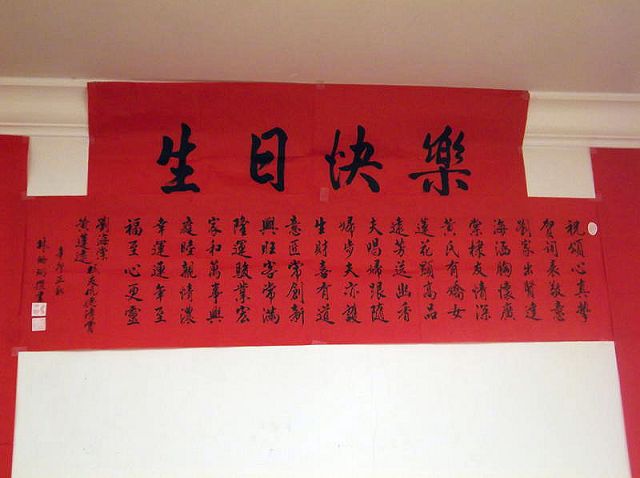 生日快樂
祝頌心真摯
賀詞表敬意
劉家出賢達
海涵胸懷廣
棠棣友情深
黃氏有嬌女
蓮花顯高品
遠芳送幽香
夫唱婦跟隨
婦步夫亦趨
生財喜有道
意匠常創新
興旺客常滿
隆運駿業宏
家和萬事興
庭睦親情濃
幸運連年至
福至心更靈
劉海棠
黃蓮遠